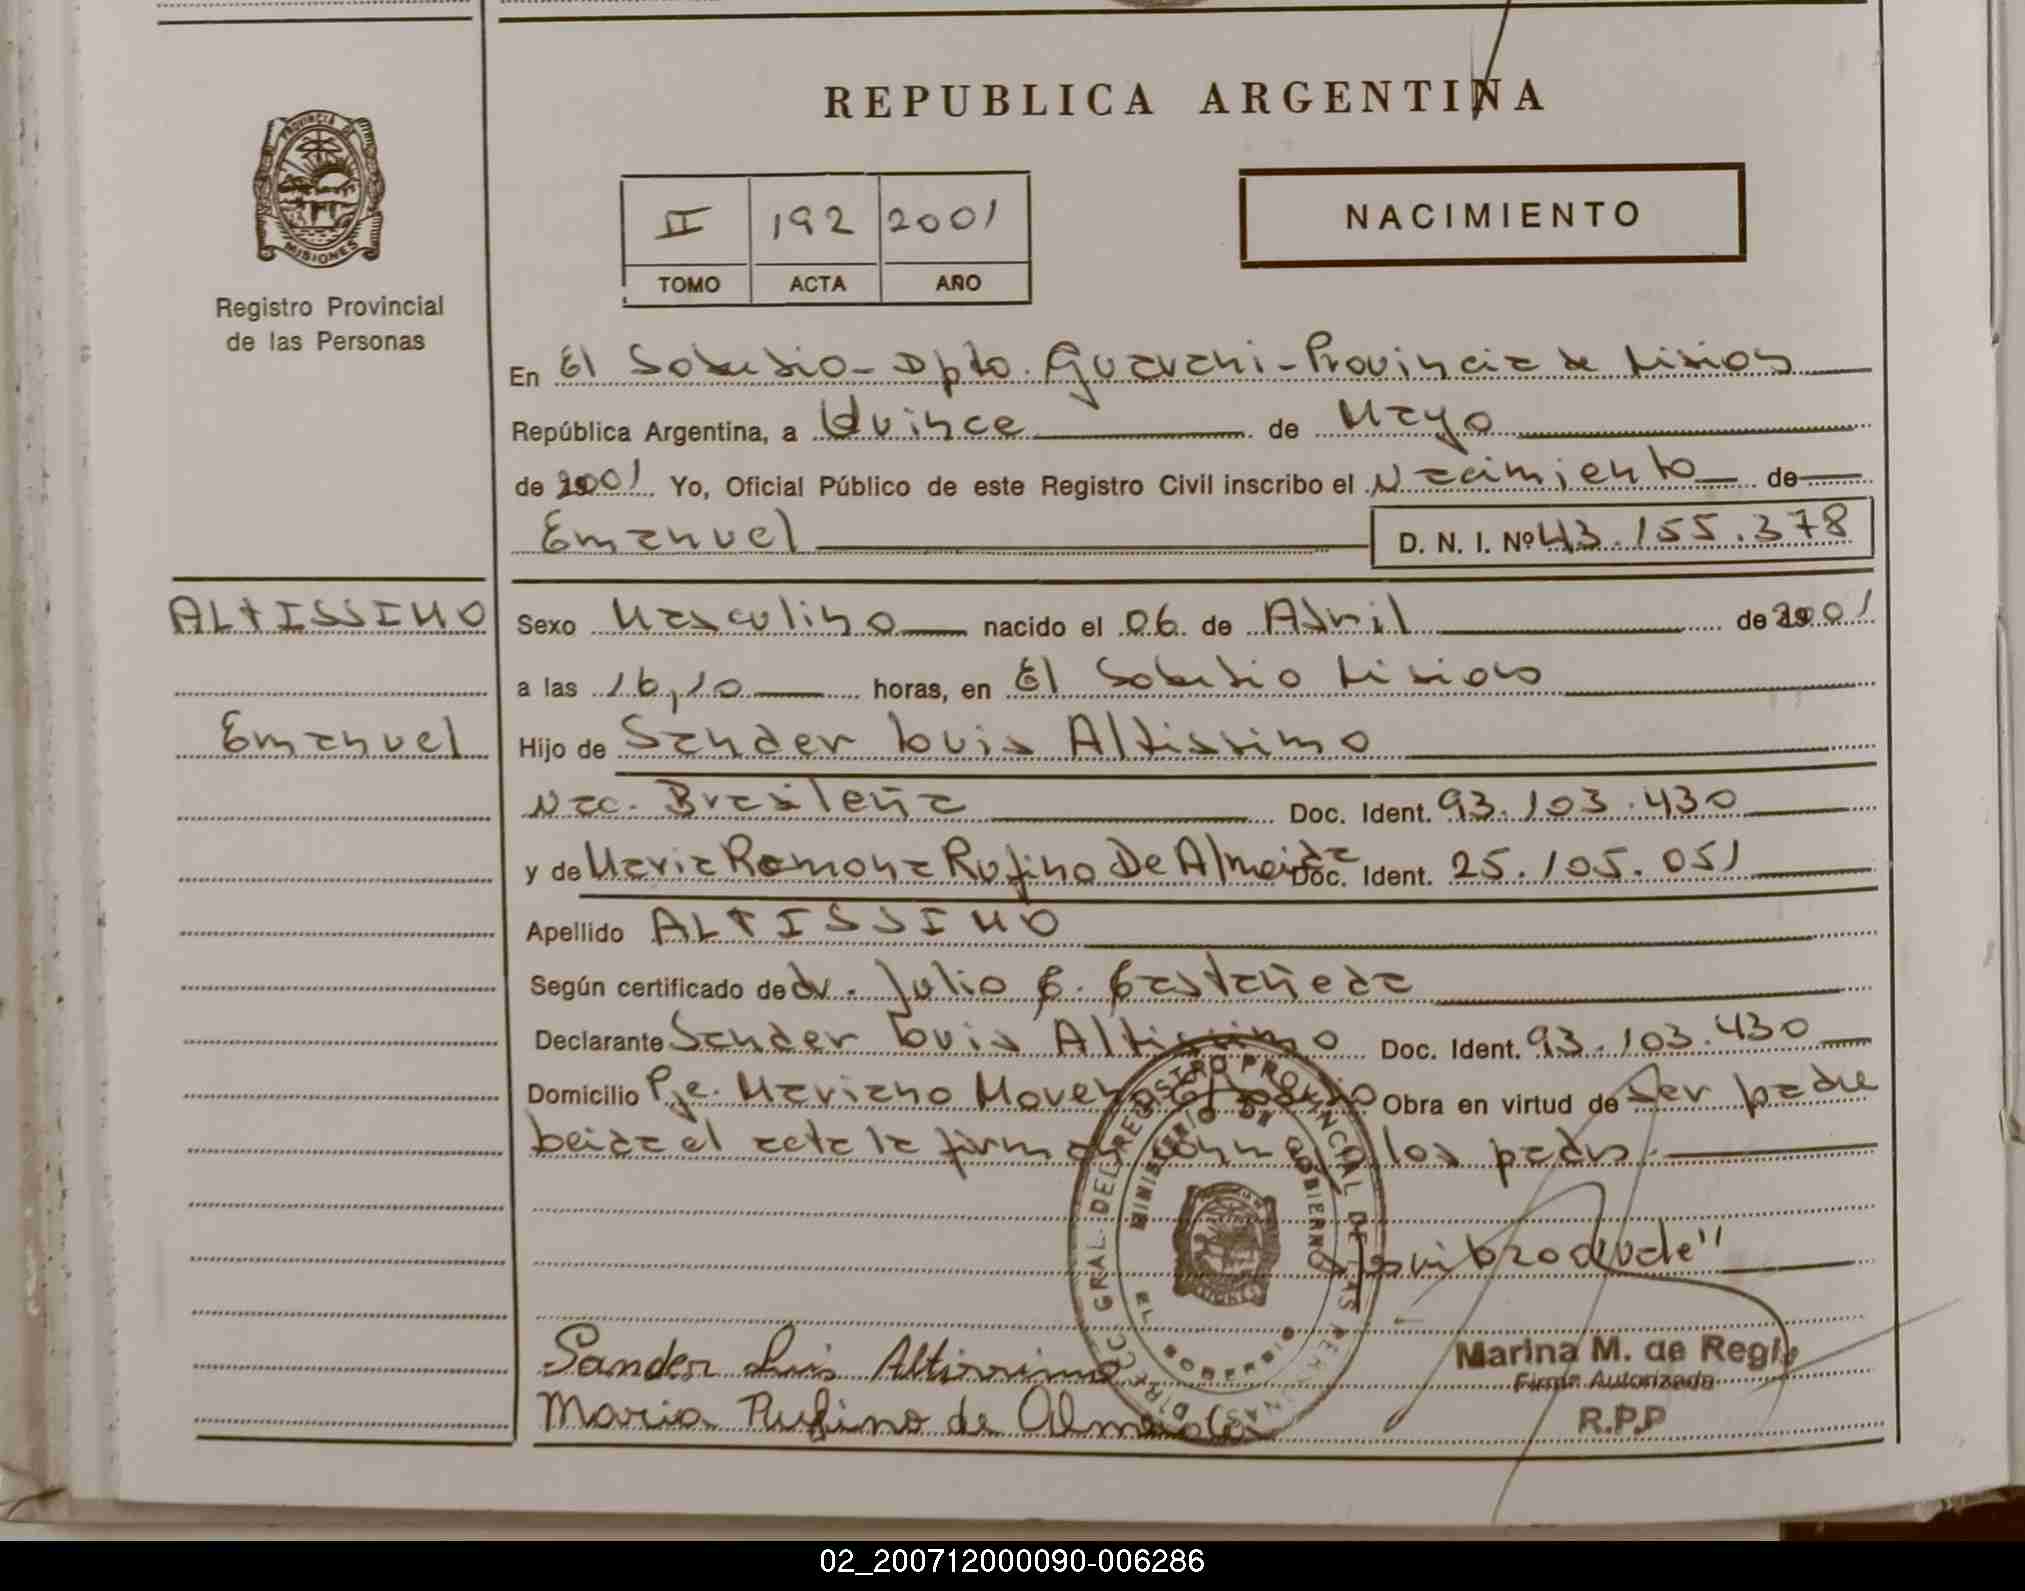 REPUBLICA ARGENTINA
PROVINCIA DE
MISIONES
Registro Provincial
de las Personas
II 192 2001
TOMO ACTA AÑO
NACIMIENTO
En El Soberbio - Dpto. Guarani - Provincia de Misiones
República Argentina, a Quince de Mayo
de 2001 Yo, Oficial Público de este Registro Civil inscribo el Nacimiento de
Emanuel D. N. I. Nº 43.155.378
ALTISSIMO
Emanuel
Sexo Masculino nacido el 06 de Abril de 2001
a las 16,10 horas, en El Soberbio Misiones
Hijo de Sander Luis Altissimo
Nac. Brasileña Doc. Ident. 93.103.430
y de Maria Ramona Rufino De Almeida Doc. Ident. 25.105.051
Apellido ALTISSIMO
Según certificado de dr. Julio C. Castañeda
Declarante Sander Luis Altissimo Doc. Ident. 93.103.430
Domicilio Pje. Mariano Moreno Obra en virtud de ser padre
Leida el acta la firman los padres
DIRECC. GRAL. DEL REGISTRO PROVINCIAL DE LAS PERSONAS
MINISTERIO DE GOBIERNO
EL SOBERBIO
Sander Luis Altissimo
Maria Rufino de Almeida
Marina M. de Regis
Firma Autorizada
R.P.P
02_200712000090-006286